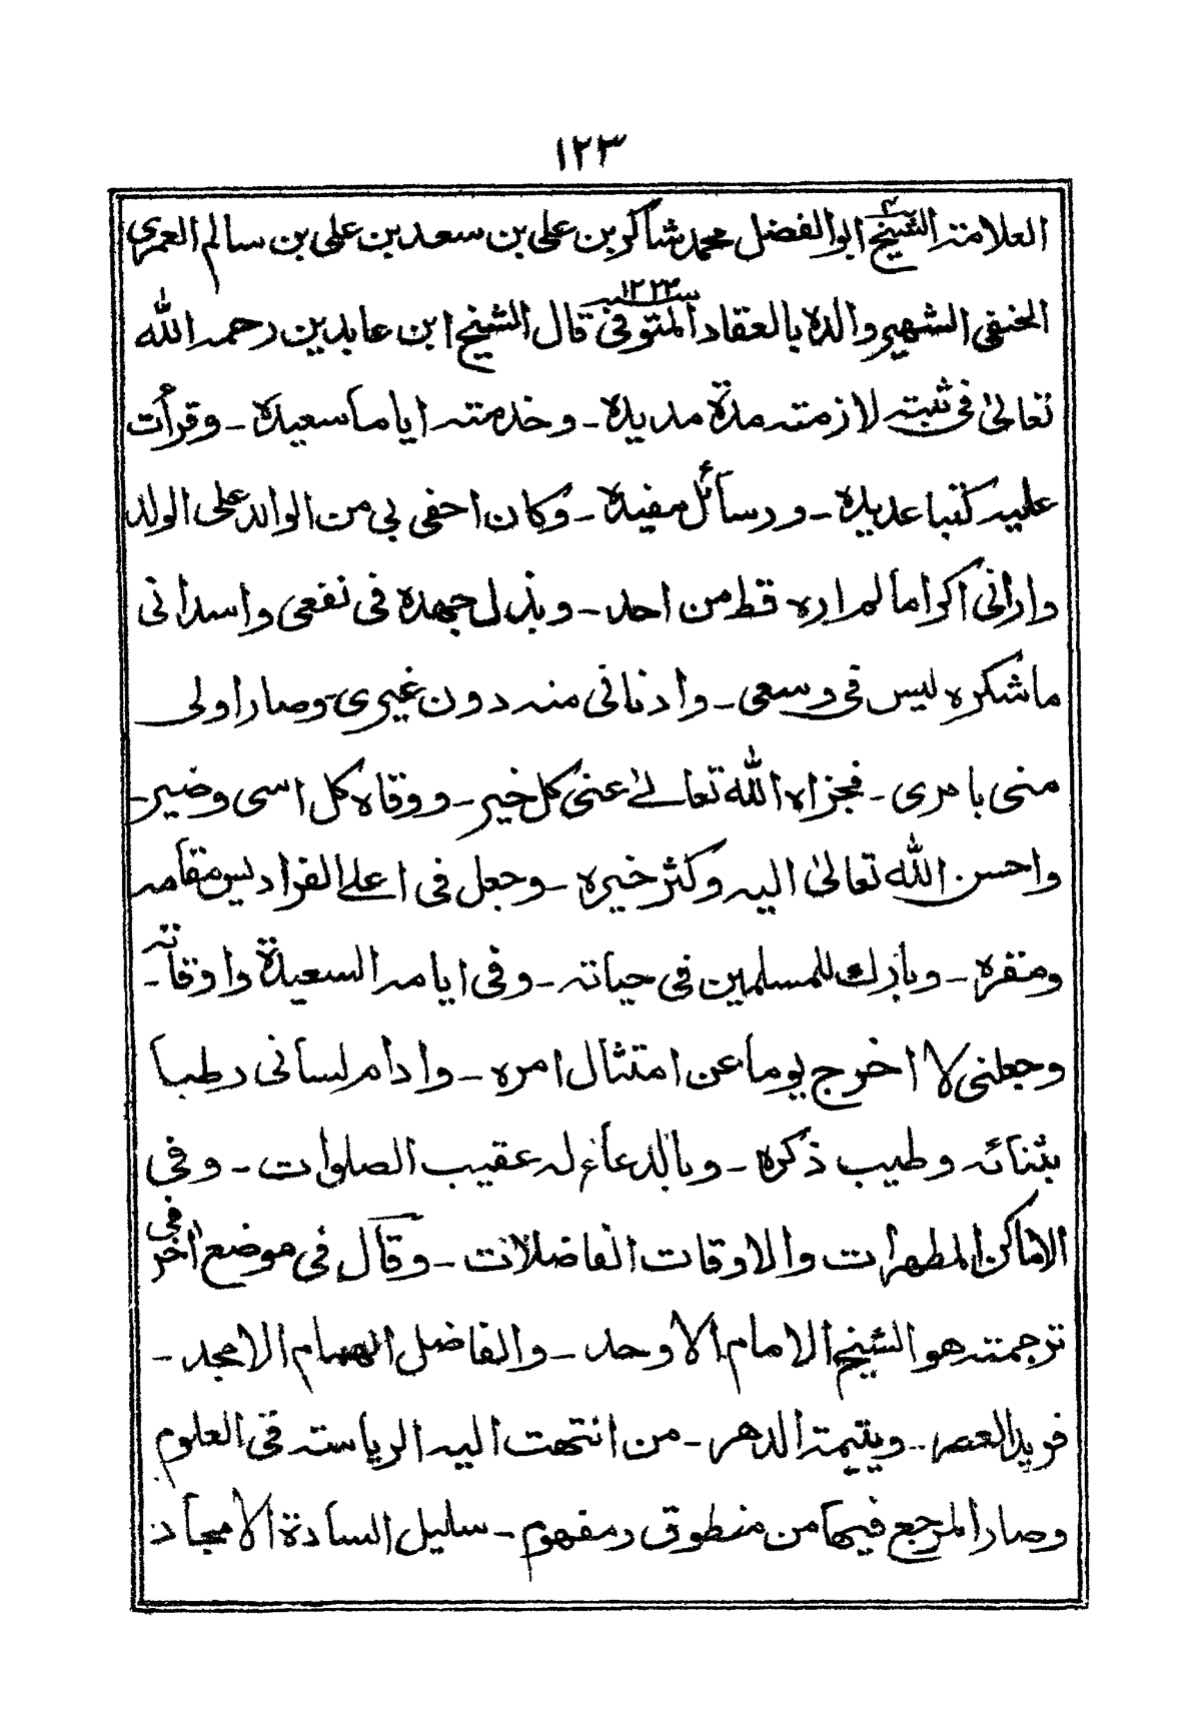 ١٢٣
العلامة الشيخ ابو الفضل محمد شاكر بن على بن سعد بن على بن سالم العمرى
الحنفى الشهير والده بالعقاد المتوفى ١٢٢٢ قال الشيخ ابن عابدين رحمه الله
تعالىٰ فى ثبته لازمته مدة مديدة ـ وخدمته اياما سعيدة ـ وقرأت
عليه كتبا عديدة ـ ورسائل مفيدة ـ وكان احفى بى من الوالد على الولد
وارانى اكراما لم اره قط من احد ـ وبذل جهده فى نفعى واسدانى
ما شكره ليس فى وسعى ـ وادنانى منه دون غيرى ـ وصار اولى
منى بامرى ـ فجزاه الله تعالىٰ عنى كل خير ـ ووقاه كل اسى وضير ـ
واحسن الله تعالىٰ اليه وكثر خيره ـ وجعل فى اعلى الفراديس مقامه
ومقره ـ وبارك للمسلمين فى حياته ـ وفى ايامه السعيدة واوقاته ـ
وجعلنى لا اخرج يوما عن امتثال امره ـ وادام لسانى رطبا
بثنائه وطيب ذكره ـ وبالدعاء له عقيب الصلوات ـ وفى
الاماكن المطهرات والاوقات الفاضلات ـ وقال فى موضع اخر فى
ترجمته هو الشيخ الامام الاوحد ـ والفاضل الهمام الامجد ـ
فريد العصر ـ ويتيمة الدهر ـ من انتهت اليه الرياسة فى العلوم
وصار المرجع فيها من منطوق ومفهوم ـ سليل السادة الامجاد